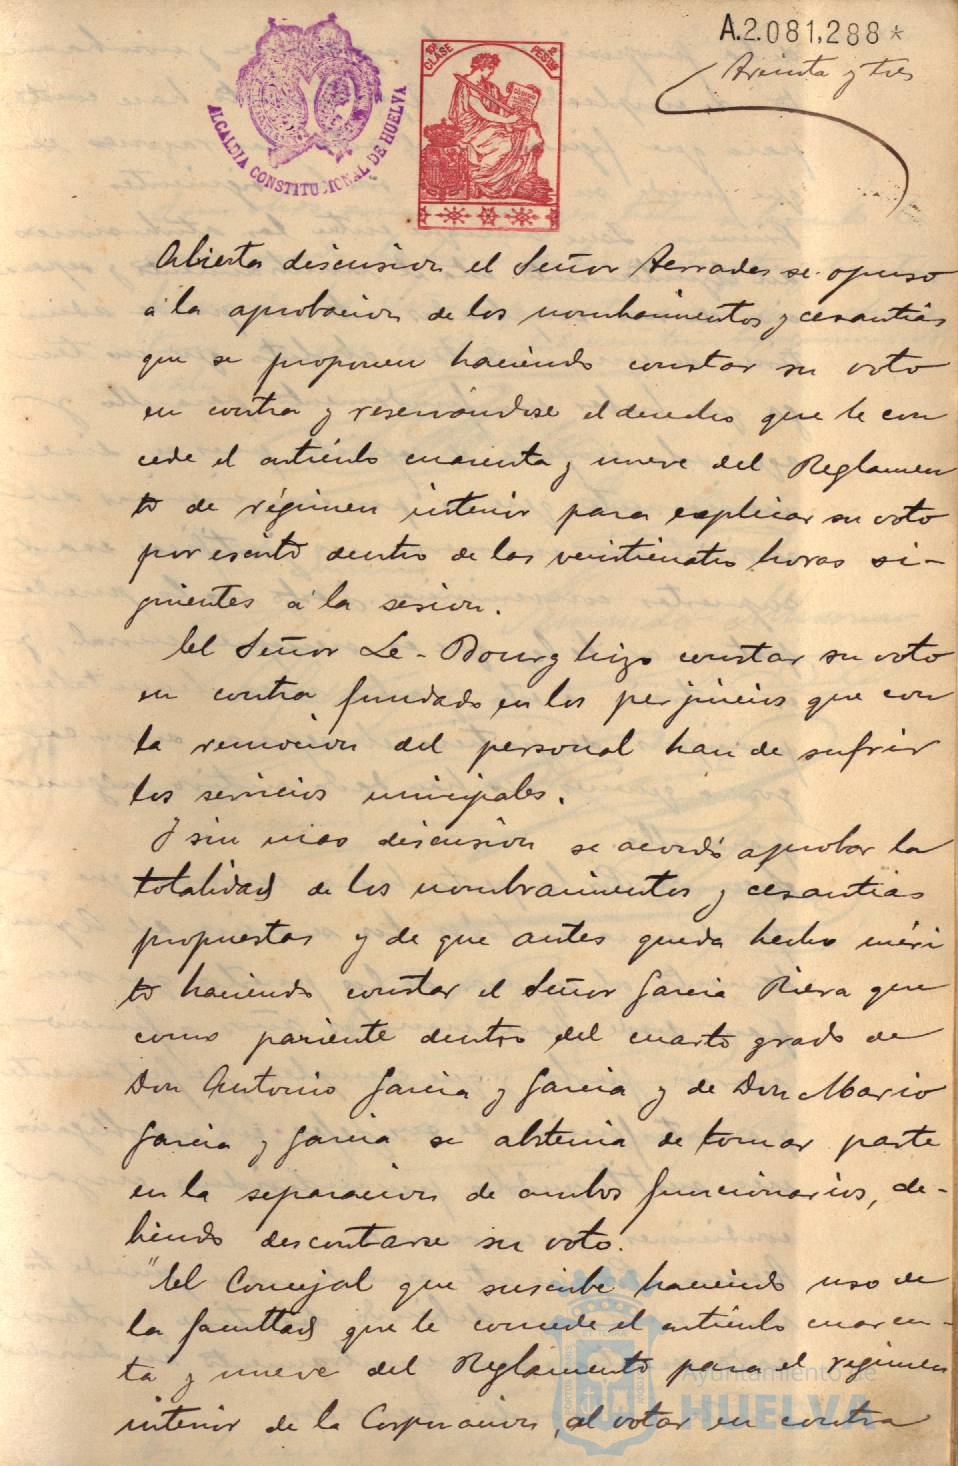 A.2.081,288*
Treinta y tres
10ª CLASE 2 PESTAS
ALCALDIA CONSTITUCIONAL DE HUELVA
Abierta discusion el Señor Terrades se opuso
á la aprobacion de los nombramientos y cesantias
que se proponen haciendo constar su voto
en contra y reservándose el derecho que le con
cede el artículo cuarenta y nueve del Reglamen
to de régimen interior para explicar su voto
por escrito dentro de las veinticuatro horas si-
guientes á la sesion.
El Señor Le-Bourg hizo constar su voto
en contra fundado en los perjuicios que con
la remocion del personal han de sufrir
los servicios municipales.
Y sin mas discusion se acordó aprobar la
totalidad de los nombramientos y cesantias
propuestas y de que antes queda hecho méri
to haciendo constar el Señor Garcia Riera que
como pariente dentro del cuarto grado de
Don Antonio Garcia y Garcia y de Don Mario
Garcia y Garcia se abstenia de tomar parte
en la separacion de ambos funcionarios, de-
biendo descontarse su voto.
"El Concejal que suscribe haciendo uso de
la facultad que le concede el artículo cuaren-
ta y nueve del Reglamento para el regimen
interior de la Corporacion, al votar en contra
Ayuntamiento de
HUELVA